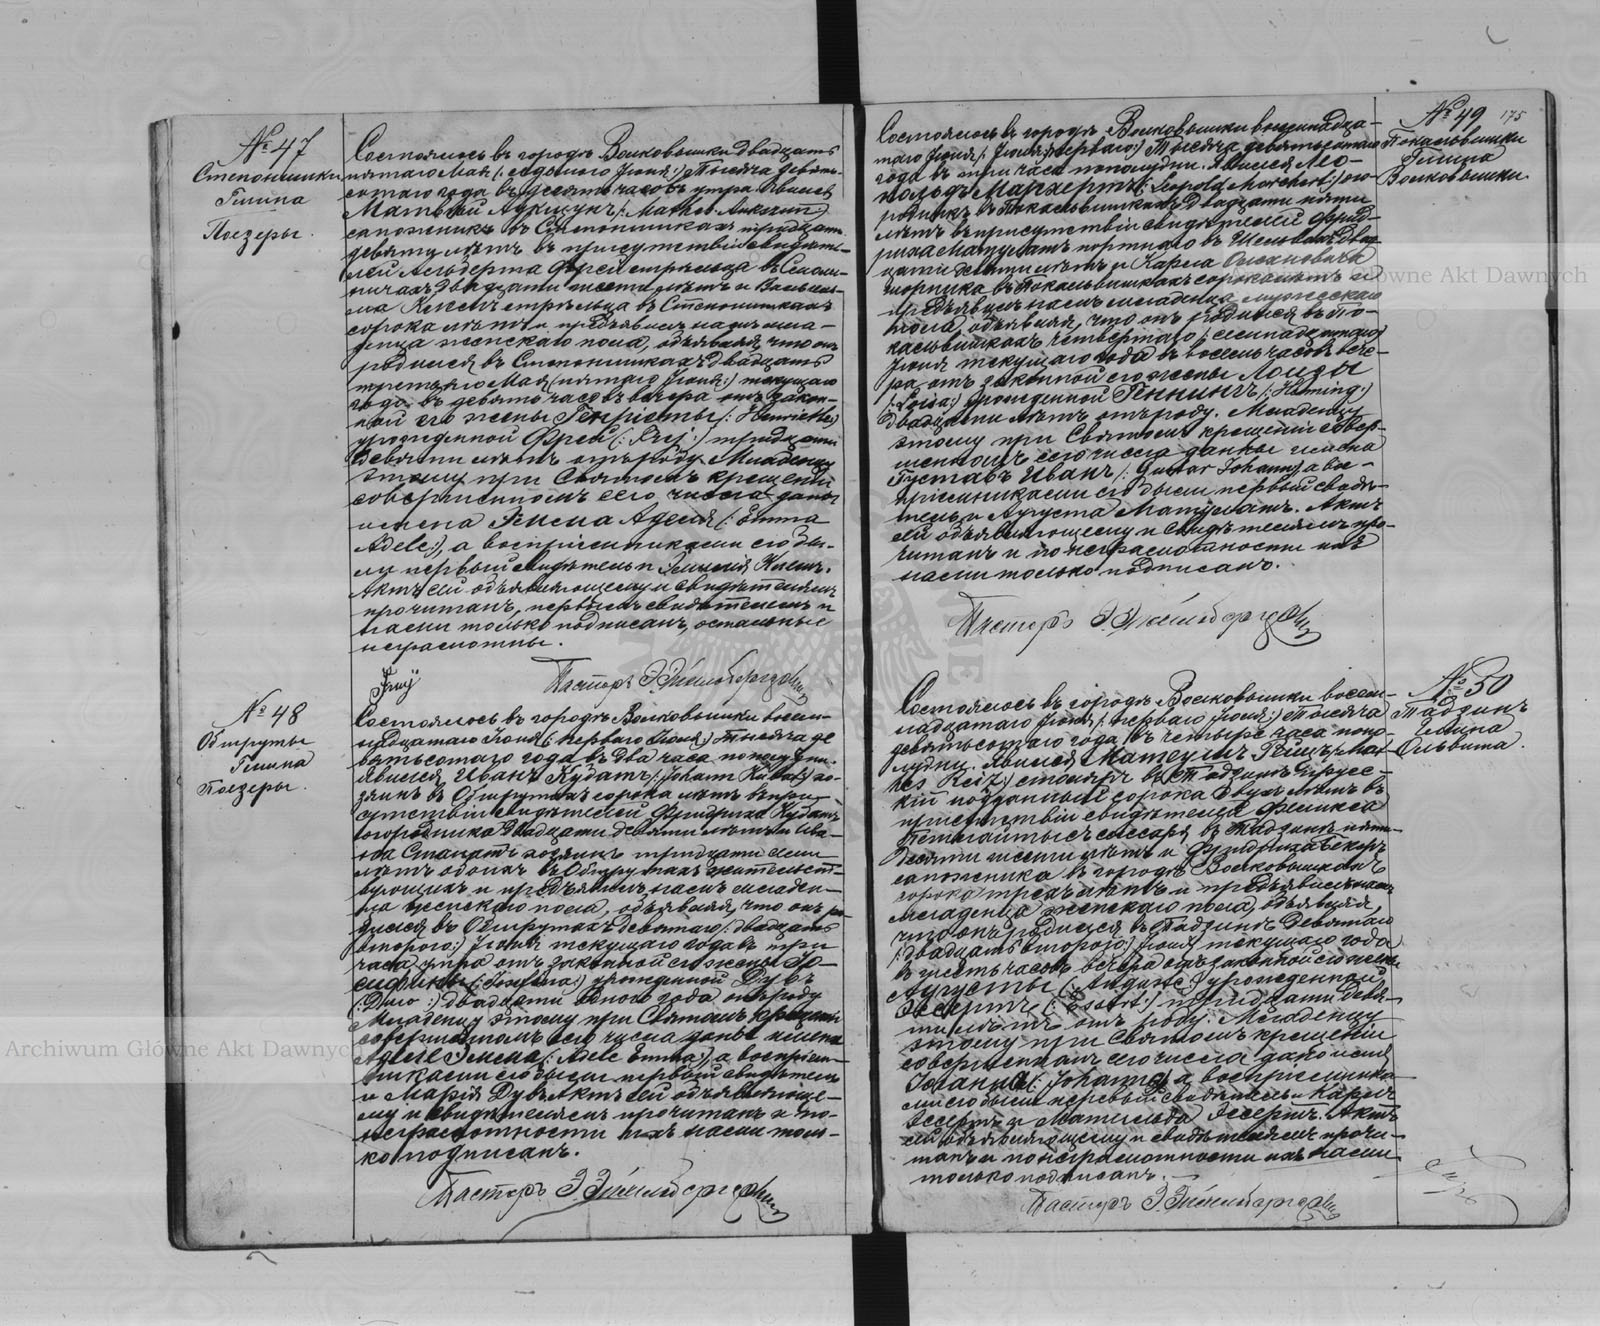 № 47
Степонишки
Гмина
Поезеры.
Состоялось въ городѣ Волковышки двадцать
пятаго Мая (: седьмого Іюня:) тысяча девять-
сотаго года въ десять часовъ утра. Явился
Матвѣй Аукщунъ (: Matheo Aukszun:)
сапожникъ въ Степонишкахъ тридцати
девяти лѣтъ въ присутствіи свидѣте-
лей Альберта Фрей стрѣльца въ
двадцати шести лѣтъ и Вильгель-
ма Клемъ стрѣльца въ Степонишкахъ
сорока лѣтъ и предъявилъ намъ мла-
денца женскаго пола, объявляя, что онъ
родился въ Степонишкахъ двадцать
третьяго Мая (пятаго Іюня:) текущаго
года въ девять часовъ вечера отъ закон-
ной его жены Генріеты (: Henriette:)
урожденной Фрей (: Frej:) тридцати
девяти лѣтъ отъ роду. Младенцу
этому при Святомъ крещеніи
совершенномъ сего числа даны
имена Эмма Аделя (: Emma
Adele:), а воспріемниками его бы-
ли первый свидѣтель и Эмилія Клемъ.
Актъ сей объявляющему и свидѣтелямъ
прочитанъ, первымъ свидѣтелемъ и
нами только подписанъ, остальные
неграмотны.
Frej
Пасторъ Э.
№ 48
Обшруты
Гмина
Поезеры.
Состоялось въ городѣ Волковышки восем-
надцатаго Іюня (: перваго Іюля:) тысяча де-
вятьсотаго года въ два часа пополудни.
Явился Иванъ Кубатъ (: Johann Kubat:) хо-
зяинъ въ Обшрутахъ сорока лѣтъ въ при-
сутствіи свидѣтелей Фридриха Кубатъ
огородника двадцати девяти лѣтъ и Ива-
на хозяина тридцати семи
лѣтъ обоихъ въ Обшрутахъ жительст-
вующихъ и предъявилъ намъ младен-
ца женскаго пола, объявляя, что онъ ро-
дился въ Обшрутахъ девятаго (: двадцать
второго:) Іюня текущаго года въ три
часа утра отъ законной его жены Іо-
сифины (: Josefina:) урожденной Дувъ
двадцати одного года отъ роду
Младенцу этому при Святомъ крещеніи
совершенномъ сего числа даны имена
Аделе Эмма (: Adele Emma:), а воспріем-
никами его были первый свидѣтель
и Марія Дувъ. Актъ сей объявляюще-
му и свидѣтелямъ прочитанъ и по
неграмотности ихъ нами толь-
ко подписанъ.
Пасторъ Э.
№ 49 175
Покальвишки
Гмина
Волковышки.
Состоялось въ городѣ Волковышки восемнадца-
таго Іюня (: Іюля перваго:) тысяча девятьсотаго
года въ три часа пополудни. Явился Лео-
польдъ Мархертъ (: Leopold Marchert:) ого-
родникъ въ Покальвишкахъ двадцати пяти
лѣтъ въ присутствіи свидѣтелей Фрид-
риха Матулатъ портнаго въ два-
дцати девяти лѣтъ и Карла
шорника въ Покальвишкахъ сорока лѣтъ и
предъявилъ намъ младенца мужескаго
пола, объявляя, что онъ родился въ По-
кальвишкахъ четвертаго (: семнадцатаго:)
Іюня текущаго года въ восемь часовъ вече-
ра, отъ законной его жены Лоизы
(: Loisa:) урожденной Геннингъ (: Henning:)
двадцати лѣтъ отъ роду. Младенцу
этому при Святомъ крещеніи совер-
шенномъ сего числа даны имена
Густавъ Иванъ (: Gustav Johann:) а вос-
пріемниками его были первый свидѣ-
тель и Августа Матулатъ. Актъ
сей объявляющему и свидѣтелямъ про-
читанъ и по неграмотности ихъ
нами только подписанъ.
Пасторъ Э.
№ 50
Тадзинъ
Гмина
Ольвита.
Состоялось въ городѣ Волковышки восем-
надцатаго Іюня (: перваго Іюля:) тысяча
девятьсотаго года въ четыре часа попо-
лудни. Явился
столяръ въ Тадзинѣ Прусс-
кій подданный сорока двухъ лѣтъ въ
присутствіи свидѣтелей Феликса
слесаря въ Тадзинѣ пяти-
десяти шести лѣтъ и Фридриха
сапожника въ городѣ Волковышкахъ
сорока трехъ лѣтъ и предъявилъ намъ
младенца женскаго пола, объявляя,
что онъ родился въ Тадзинѣ девятаго
(: двадцать второго:) Іюня текущаго года
въ шесть часовъ вечера отъ законной его жены
Августы (: Auguste:) урожденной
Эсертъ (: Esert:) тридцати девя-
ти лѣтъ отъ роду. Младенцу
этому при Святомъ крещеніи
совершенномъ сего числа дано имя
Іоганна (: Johanna:) а воспріемника-
ми его были первый свидѣтель и Карлъ
Эсертъ и Матильда Эсертъ. Актъ
сей объявляющему и свидѣтелямъ прочи-
танъ и по неграмотности ихъ нами
только подписанъ.
Пасторъ Э.
Archiwum Główne Akt Dawnych